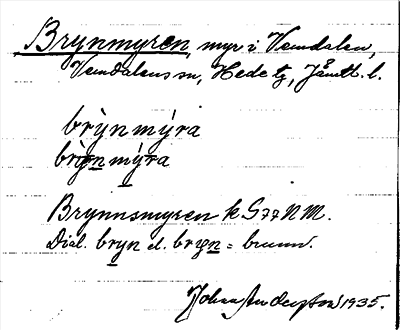 Brynmyren, myr i Vemdalen,
Vemdalens sn, Hede tg, Jämtl. l.
brỳnmýra
brỳnmýra
Brynnsmyren k G77 NM.
Dial. bryn el. bryn = brunn.
Johan Anderson 1935.